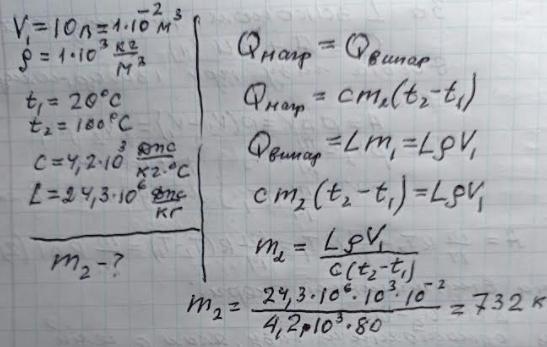 V₁ = 10 л = 1·10⁻² м³
ρ = 1·10³ кг/м³
t₁ = 20°C
t₂ = 100°C
c = 4,2·10³ Дж/кг·°C
L = 24,3·10⁶ Дж/кг
m₂ - ?
Qнагр = Qвипар
Qнагр = cm₂(t₂-t₁)
Qвипар = Lm₁ = LρV₁
cm₂(t₂-t₁) = LρV₁
m₂ = LρV₁ / c(t₂-t₁)
m₂ = 24,3·10⁶·10³·10⁻² / 4,2·10³·80 = 732 к